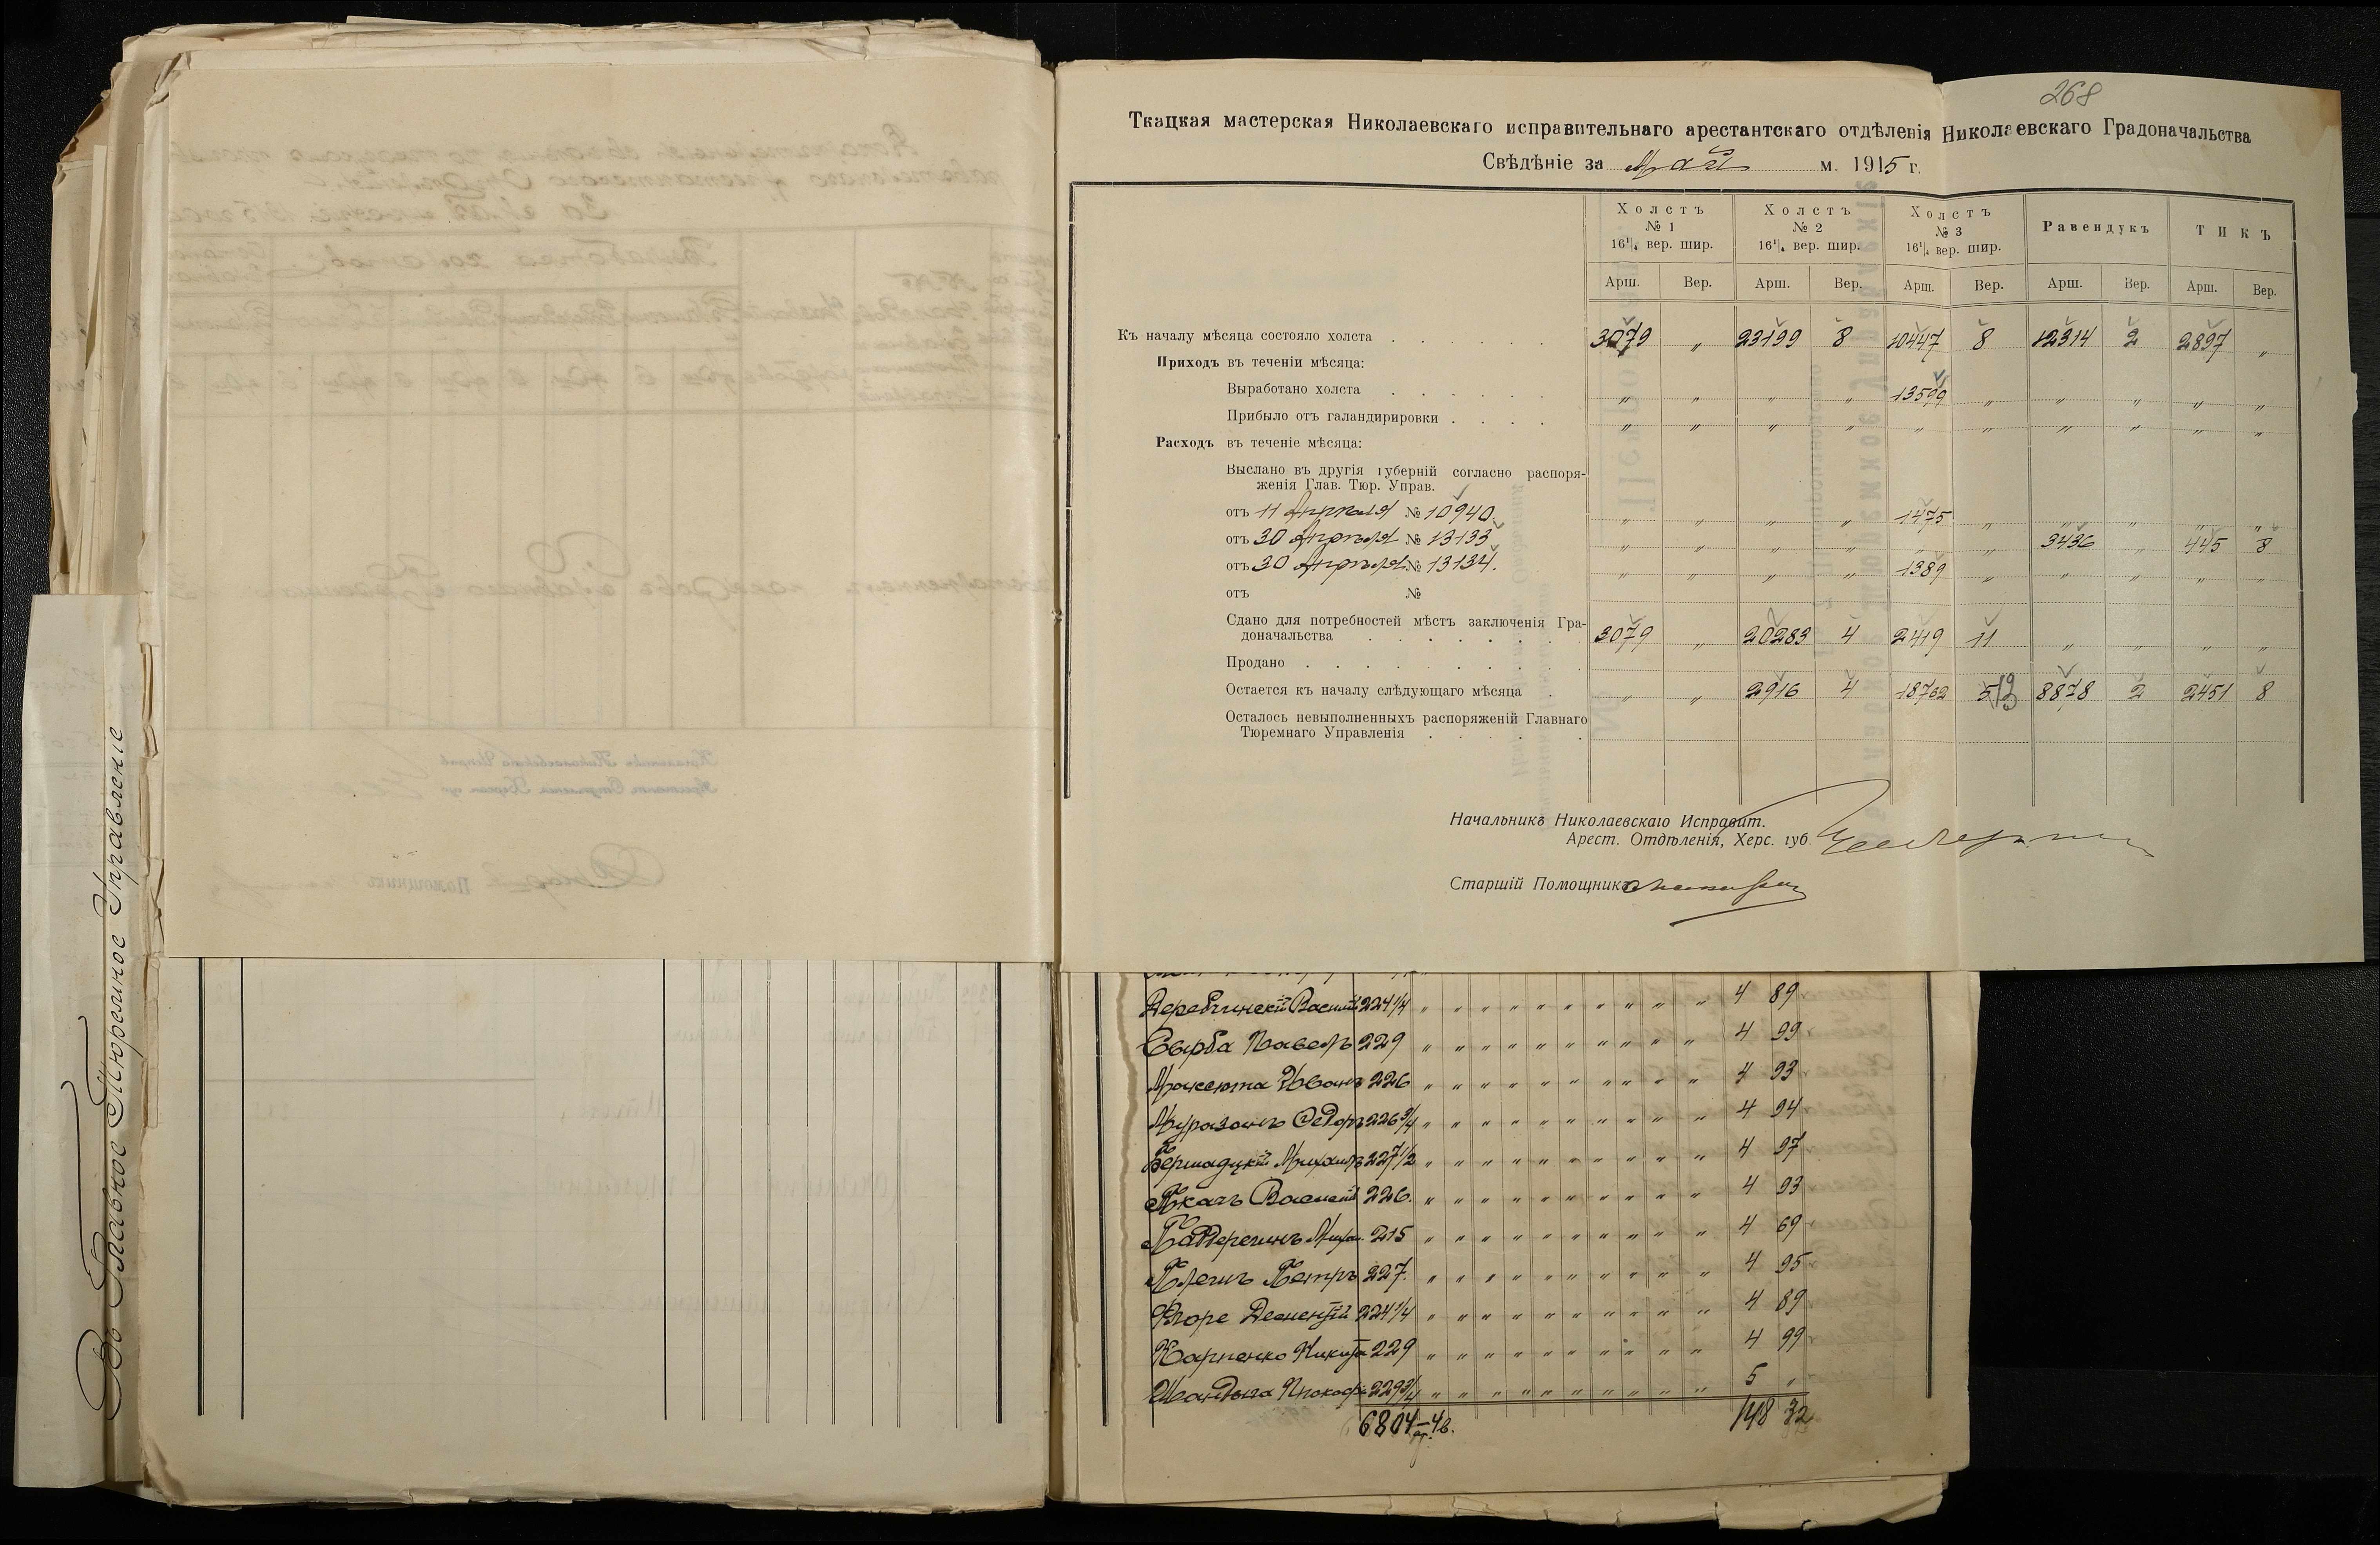 268
Ткацкая мастерская Николаевскаго исправительнаго арестантскаго отдѣленія Николаевскаго Градоначальства
Свѣдѣніе за Май м. 1915 г.
Холстъ № 1 16¼ вер. шир. Холстъ № 2 16¼ вер. шир. Холстъ № 3 16¼ вер. шир. Равендукъ ТИКЪ
Арш. Вер. Арш. Вер. Арш. Вер. Арш. Вер. Арш. Вер.
Къ началу мѣсяца состояло холста . . . . . . 3079 " 23199 8 10447 8 12314 2 2897 "
Приходъ въ теченіи мѣсяца:
Выработано холста . . . . . . " " " " 13599 " " " " "
Прибыло отъ галандирировки . . . . " " " " " " " " " "
Расходъ въ теченіе мѣсяца:
Выслано въ другія губерній согласно распоря-
женія Глав. Тюр. Управ.
отъ 11 Апрѣля № 10940. " " " " 1475 " " " " "
отъ 30 Апрѣля № 13133 " " " " " " 3436 " 445 8
отъ 30 Апрѣля № 13134. " " " " 1389 " " " " "
отъ №
Сдано для потребностей мѣстъ заключенія Гра-
доначальства . . . . . . . 3079 " 20283 4 2419 11 " " " "
Продано . . . . . . . . .
Остается къ началу слѣдующаго мѣсяца . " " 2916 4 18762 13 8878 2 2451 8
Осталось невыполненныхъ распоряженій Главнаго
Тюремнаго Управленія . . . . .
Начальникъ Николаевскаго Исправит.
Арест. Отдѣленія, Херс. губ.
Старшій Помощникъ
Въ Главное Тюремное Управленіе
Деревчинскій Василій 224 1/4 " " " " " " " " " " 4 89
Сырба Павелъ 229 " " " " " " " " " " 4 99
Иванъ 226 " " " " " " " " " " 4 93
Федоръ 226 3/4 " " " " " " " " " " 4 94
Бершадскій Михаилъ 227 1/2 " " " " " " " " " " 4 97
Ткачъ Василій 226. " " " " " " " " " " 4 93
215 " " " " " " " " " " 4 69
Петръ 227. " " " " " " " " " " 4 95
224 1/4 " " " " " " " " " " 4 89
Карпенко Никита 229 " " " " " " " " " " 4 99
Шандыга Прокофій 229 3/4 " " " " " " " " " " 5 "
6804 ар. – 4 в. 148 32